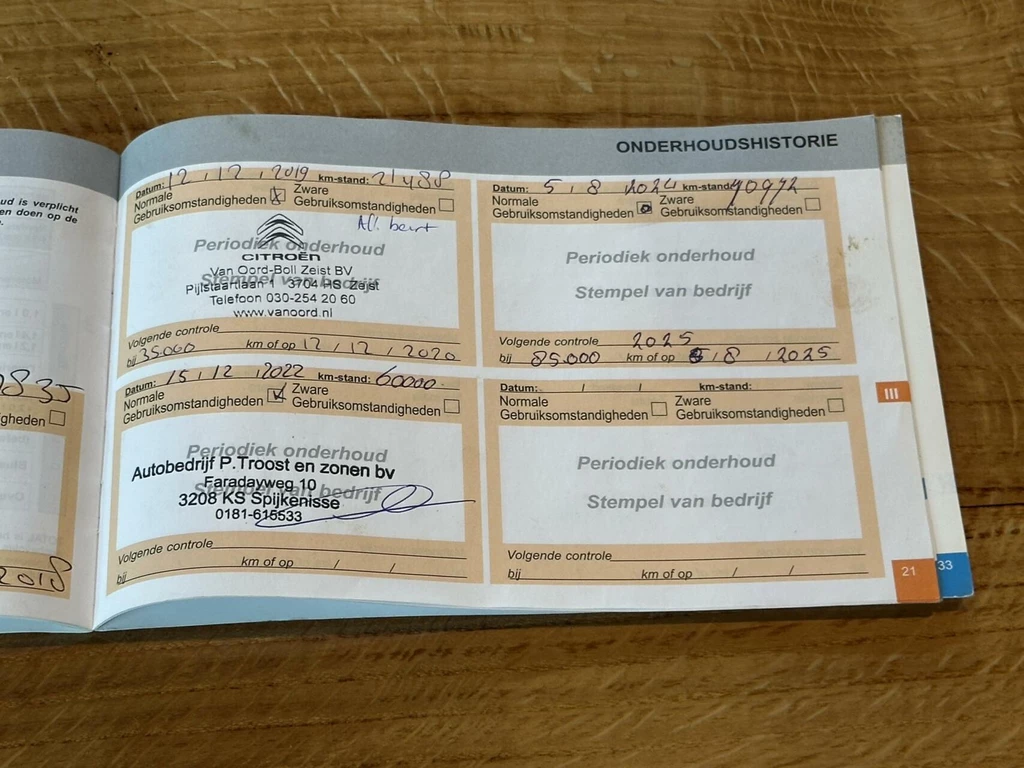 ud is verplicht
en doen op de
835
gheden
2018
ONDERHOUDSHISTORIE
Datum: 12 / 12 / 2019 km-stand: 21488
Normale Gebruiksomstandigheden
Zware Gebruiksomstandigheden
Periodiek onderhoud
CITROËN
Stempel van bedrijf
Van Oord-Boll Zeist BV
Pijlstaartlaan 1 3704 HS Zeist
Telefoon 030-254 20 60
www.vanoord.nl
Volgende controle
bij 35.000 km of op 12 / 12 / 2020
Datum: 15 / 12 / 2022 km-stand: 60000
Normale Gebruiksomstandigheden
Zware Gebruiksomstandigheden
Periodiek onderhoud
Stempel van bedrijf
Autobedrijf P.Troost en zonen bv
Faradayweg 10
3208 KS Spijkenisse
0181-615533
Volgende controle
bij km of op / /
Datum: 5 / 8 / 2024 km-stand: 70972
Normale Gebruiksomstandigheden
Zware Gebruiksomstandigheden
Periodiek onderhoud
Stempel van bedrijf
Volgende controle 2025
bij 85.000 km of op 5 / 8 / 2025
Datum: / / km-stand:
Normale Gebruiksomstandigheden
Zware Gebruiksomstandigheden
Periodiek onderhoud
Stempel van bedrijf
Volgende controle
bij km of op / /
III
21
33